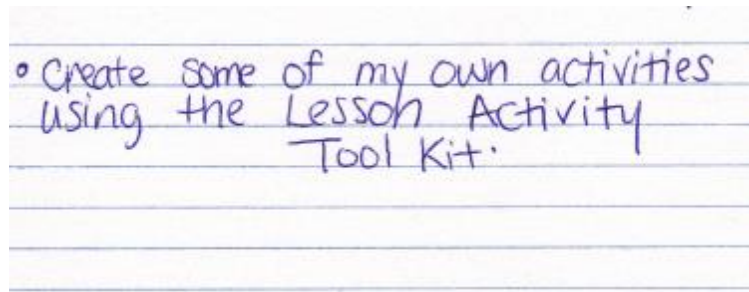 • Create some of my own activities
using the Lesson Activity
Tool Kit.